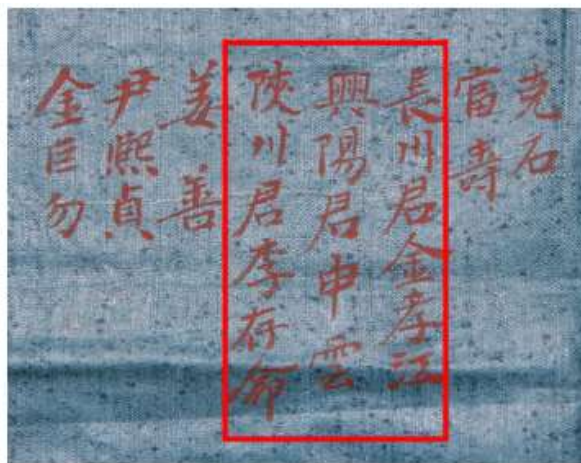 克石
富寿
長川君金孝江
興陽君申雲
陜川君李存命
姜善
尹熙貞
金巨勿